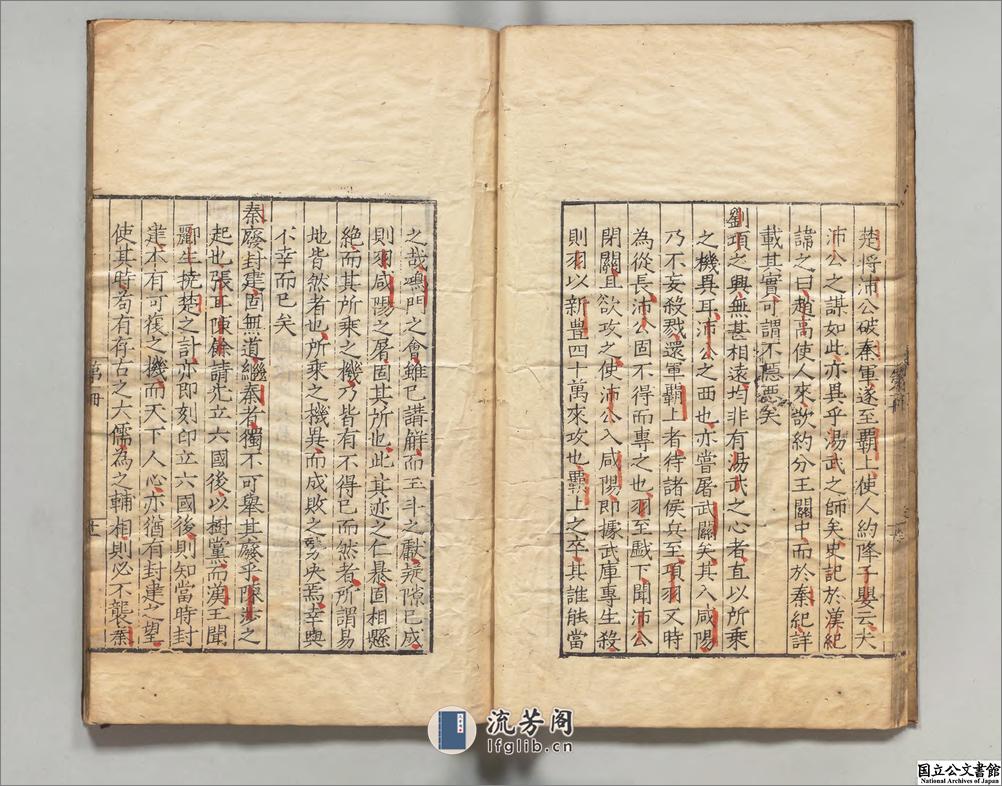 楚將沛公破秦軍遂至覇上使人約降子嬰云夫
沛公之謀如此亦異乎湯武之師矣史記於漢紀
諱之曰趙高使人來欲約分王關中而於秦紀詳
載其實可謂不隱惡矣
劉項之興無甚相遠均非有湯武之心者直以所乘
之機異耳沛公之西也亦嘗屠武關矣其入咸陽
乃不妄殺戮還軍覇上者待諸侯兵至項羽又時
為從長沛公固不得而專之也羽至戱下聞沛公
閉關且欲攻之使沛公入咸陽即據武庫專生殺
則羽以新豊四十萬來攻也覇上之卒其誰能當
之哉鳴門之會雖已講解而玉斗之獻疑隙已成
則羽咸陽之屠固其所也此其迹之仁暴固相懸
絶而其所乘之機乃皆有不得已而然者所謂易
地皆然者也所乘之機異而成敗之勢决焉幸與
不幸而已矣
秦廢封建固無道繼秦者獨不可舉其廢乎陳涉之
起也張耳陳餘請先立六國後以樹黨而漢王聞
酈生撓楚之計亦即刻印立六國後則知當時封
建本有可復之機而天下人心亦猶有封建之望
使其時苟有存古之大儒為之輔相則必不襲秦
流芳阁
lfglib.cn
国立公文書館
National Archives of Japan